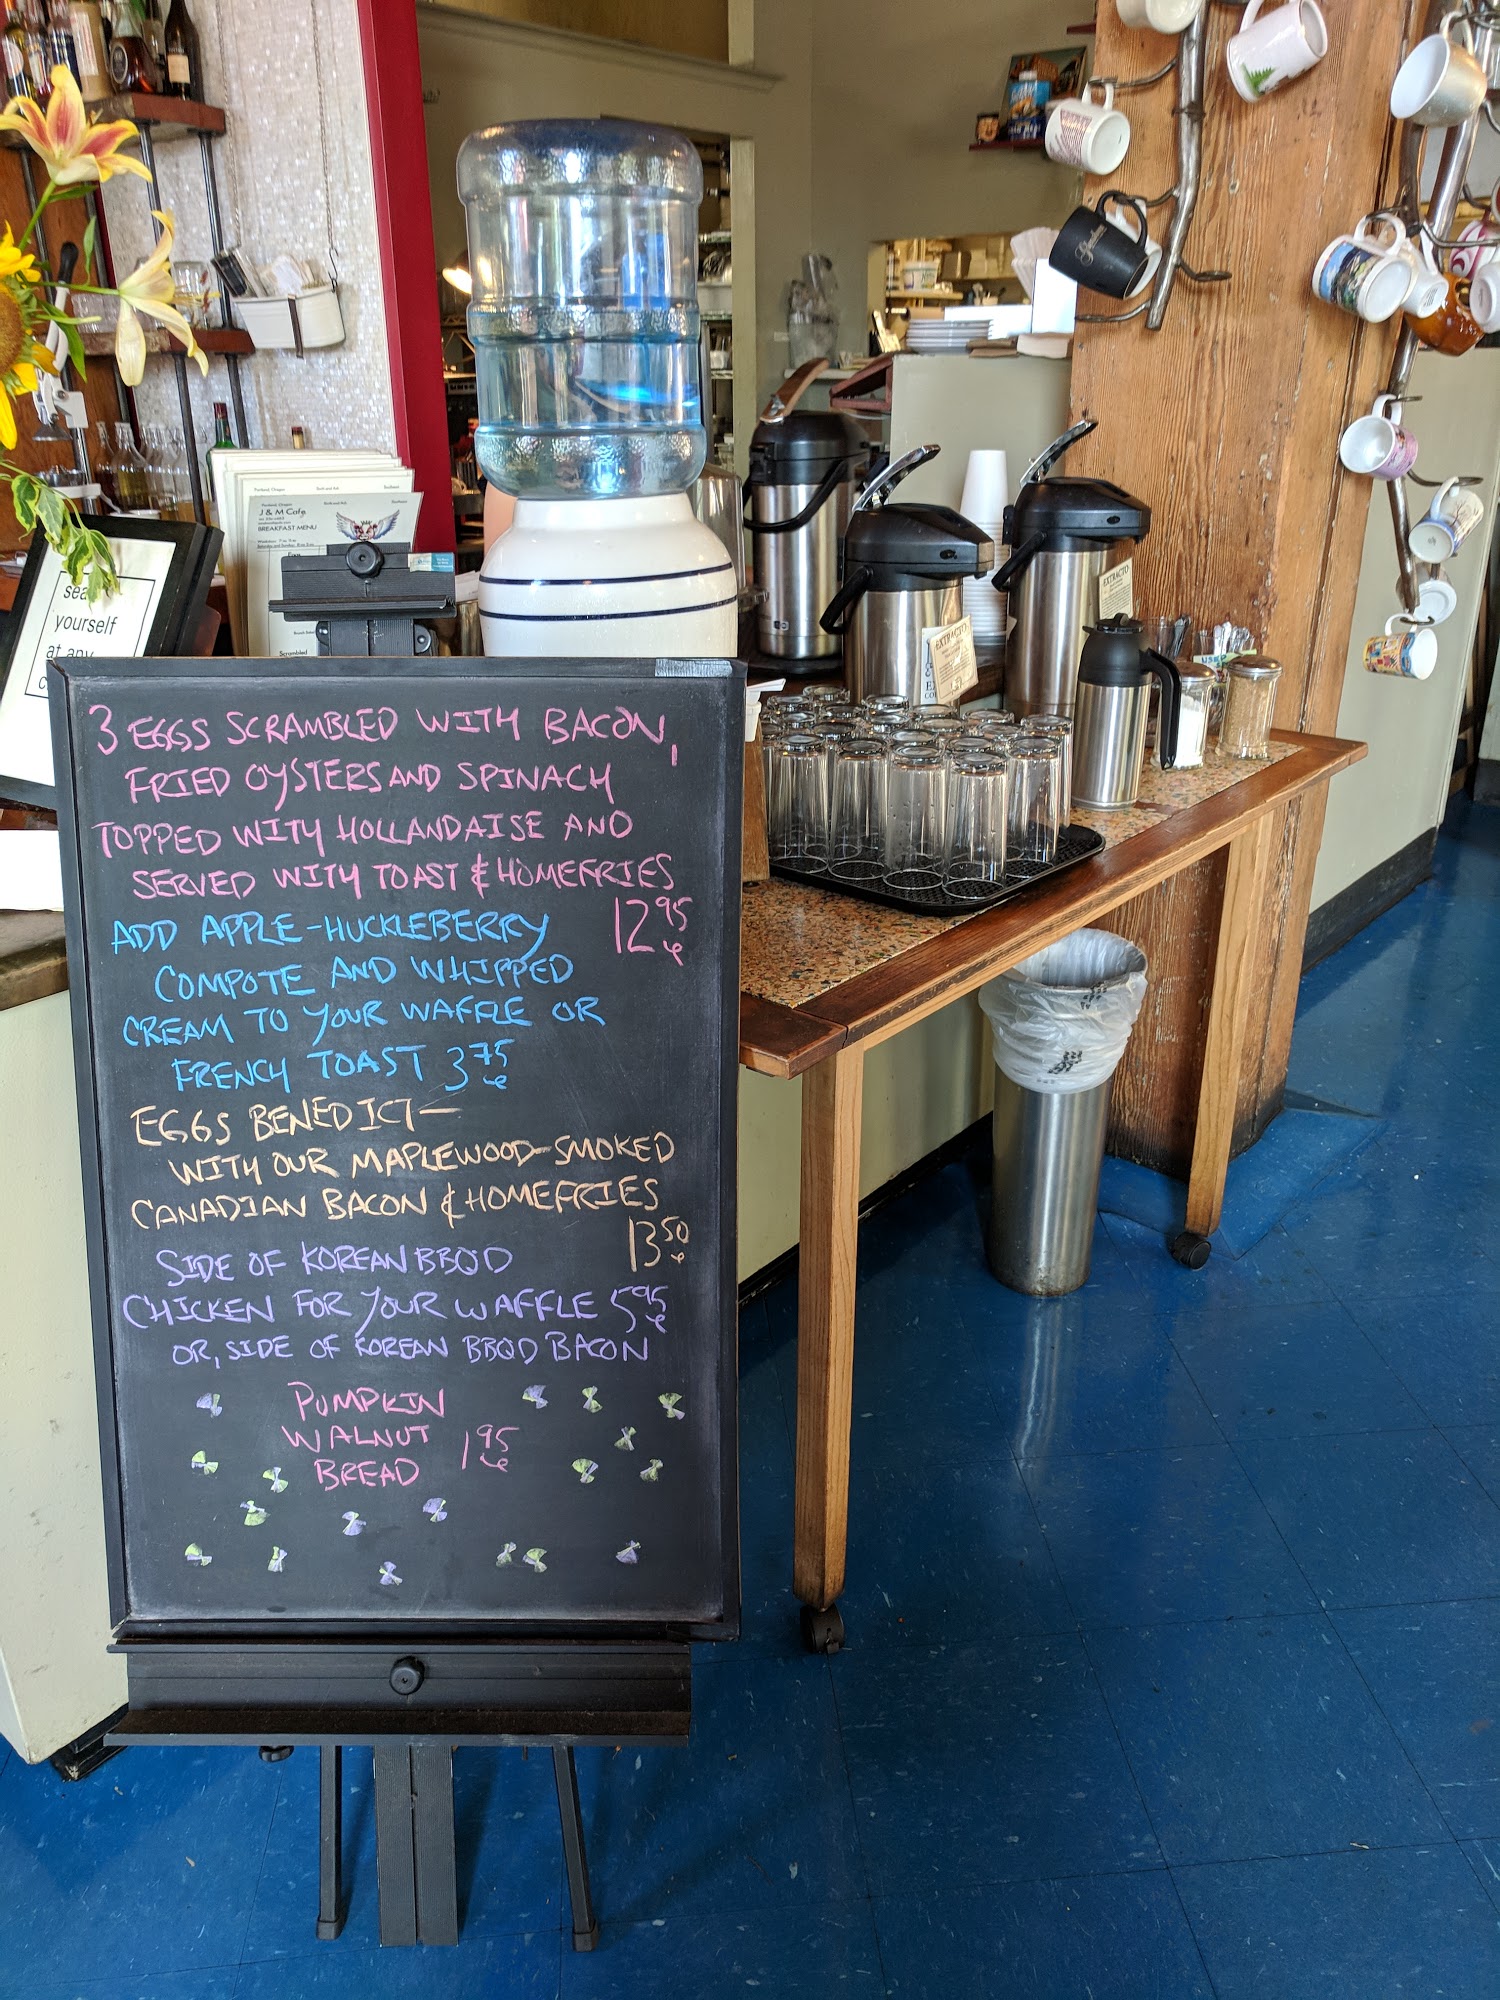 J & M Cafe
BREAKFAST MENU
Portland, Oregon
Scrambled
sea
yourself
at any
3 EGGS SCRAMBLED WITH BACON,
FRIED OYSTERS AND SPINACH
TOPPED WITH HOLLANDAISE AND
SERVED WITH TOAST & HOMEFRIES
12 95
ADD APPLE-HUCKLEBERRY
COMPOTE AND WHIPPED
CREAM TO YOUR WAFFLE OR
FRENCH TOAST 3 75
EGGS BENEDICT—
WITH OUR MAPLEWOOD-SMOKED
CANADIAN BACON & HOMEFRIES
13 50
SIDE OF KOREAN BBQ'D
CHICKEN FOR YOUR WAFFLE 5 95
OR, SIDE OF KOREAN BBQ'D BACON
PUMPKIN
WALNUT 1 95
BREAD
EXTRACTO
EXTRACTO
USED